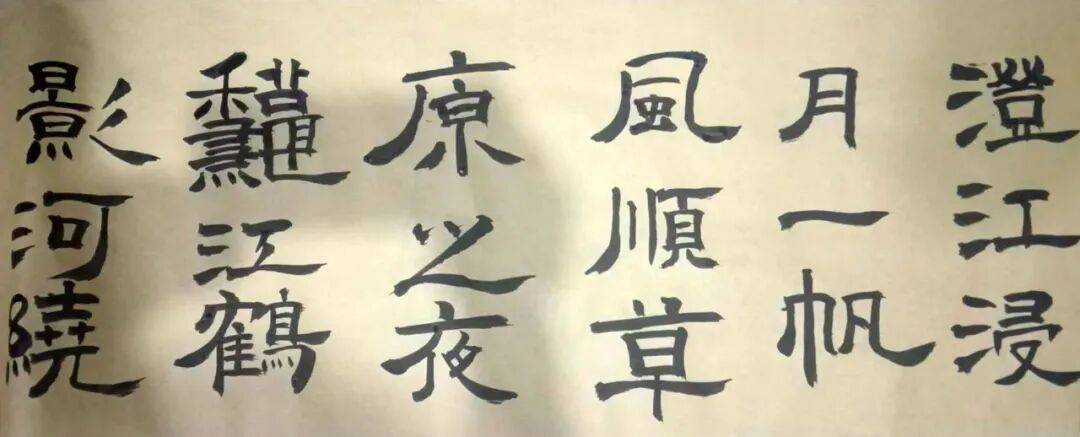 澄江浸
月一帆
風順草
原之夜
龝江鶴
影河繞